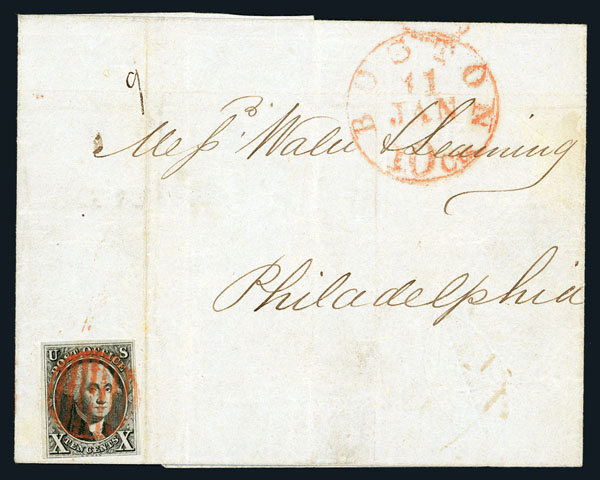 BOSTON
11
JAN
10cts
9
Mess rs Waln & Leaming
Philadelphia
U S
POST OFFICE
X TEN CENTS X